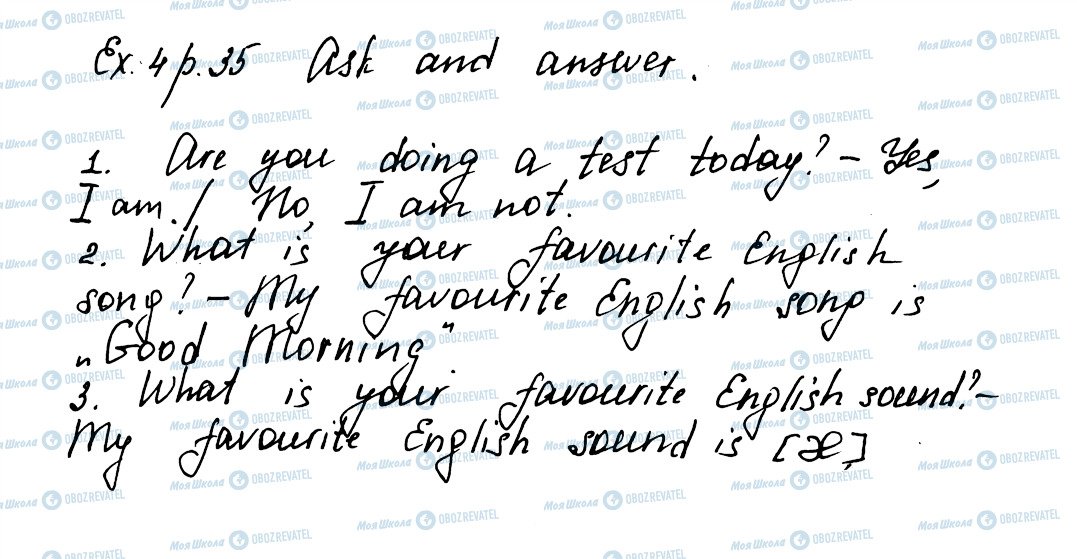 Ex. 4 p. 35 Ask and answer.
1. Are you doing a test today? – Yes,
I am. / No, I am not.
2. What is your favourite English
song? – My favourite English song is
„Good Morning"
3. What is your favourite English sound? –
My favourite English sound is [æ]